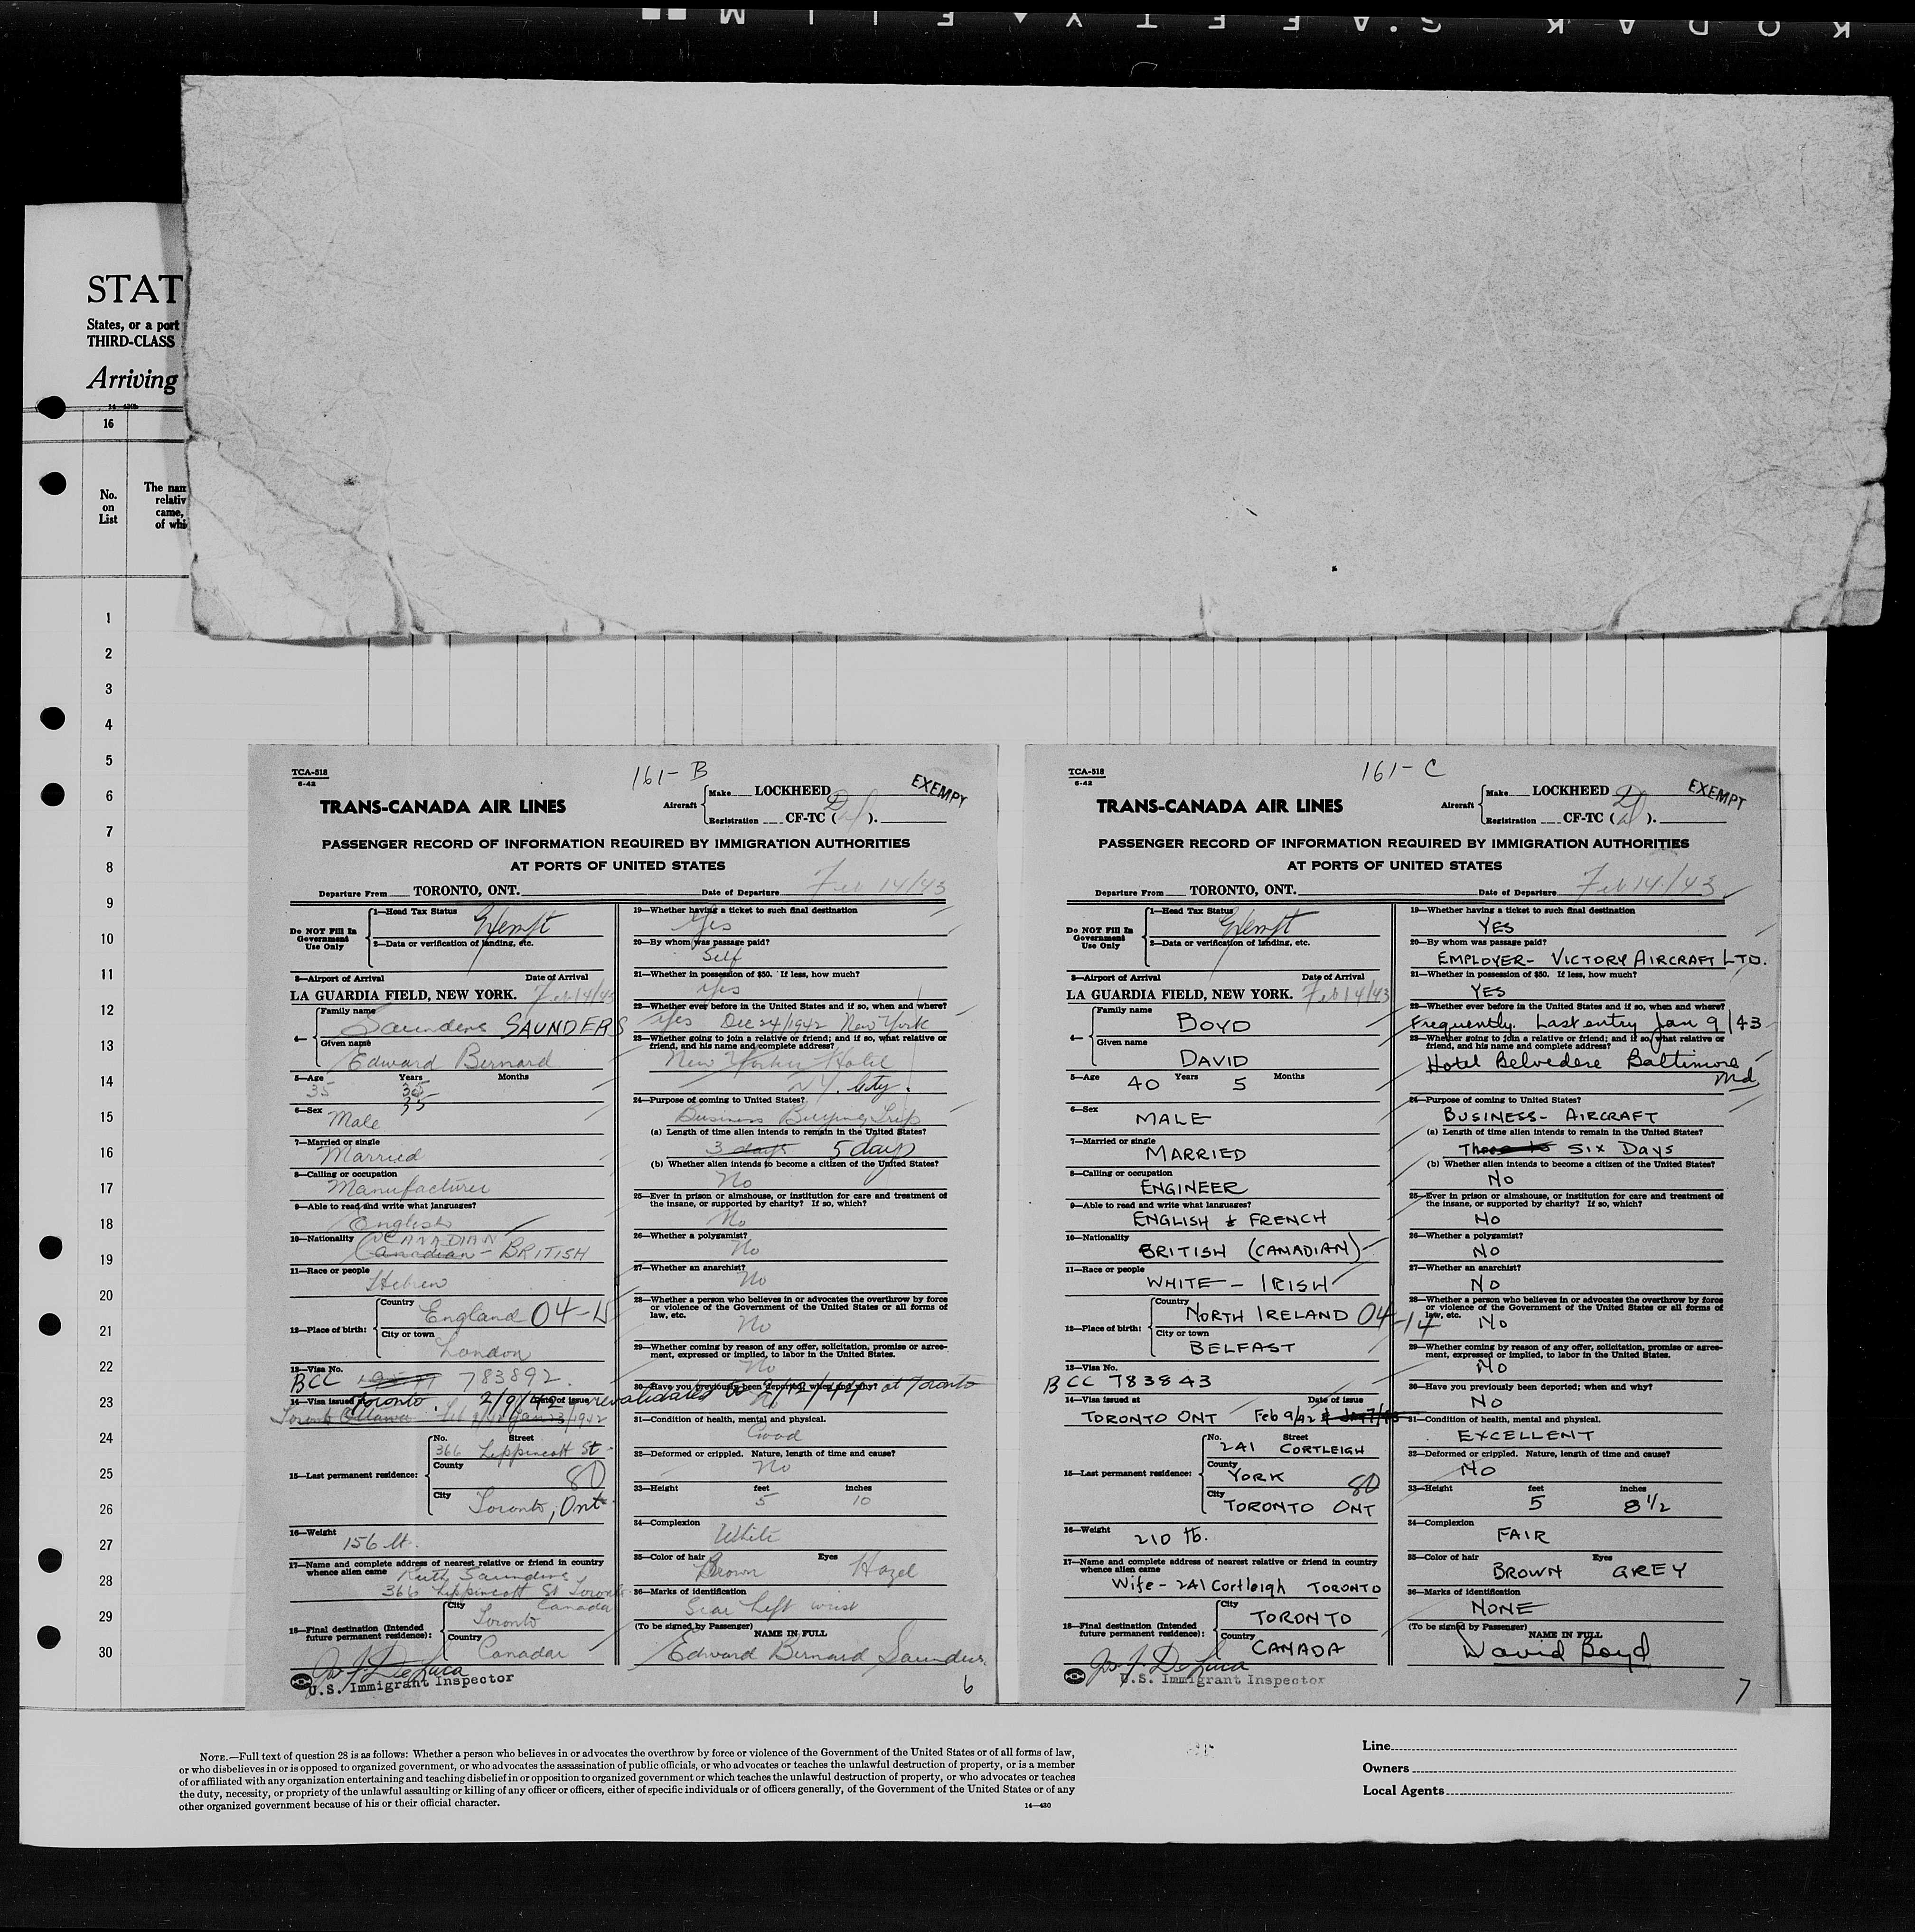 KODAK S.AFETY ▲ FILM
STAT
States, or a port
THIRD-CLASS
Arriving
14—430b
16
No.
on
List
The nam
relativ
came,
of whi
1
2
3
4
5
6
7
8
9
10
11
12
13
14
15
16
17
18
19
20
21
22
23
24
25
26
27
28
29
30
TCA-518
6-42
161-B
EXEMPT
TRANS-CANADA AIR LINES
Aircraft
Make LOCKHEED
Registration CF-TC ( ).
PASSENGER RECORD OF INFORMATION REQUIRED BY IMMIGRATION AUTHORITIES
AT PORTS OF UNITED STATES
Departure From TORONTO, ONT. Date of Departure Feb 14/43
Do NOT Fill In
Government
Use Only
1—Head Tax Status Exempt
2—Data or verification of landing, etc.
3—Airport of Arrival Date of Arrival
LA GUARDIA FIELD, NEW YORK. Feb 14/43
4— Family name
Saunders SAUNDERS
Given name
Edward Bernard
5—Age Years Months
35 35
35
6—Sex
Male
7—Married or single
Married
8—Calling or occupation
Manufacturer
9—Able to read and write what languages?
English
10—Nationality CANADIAN
Canadian - BRITISH
11—Race or people
Hebrew
12—Place of birth:
Country
England 04-
City or town
London
13—Visa No.
BCC 783892.
14—Visa issued at Toronto. 2/9/42 Date of issue revalidated to 2/12/44 at Toronto
Toronto Ottawa Feb 9/42 Jan 23/1942
15—Last permanent residence:
No. Street
366 Lippincott St.
County
80
City
Toronto, Ont.
16—Weight
156 lb.
17—Name and complete address of nearest relative or friend in country
whence alien came Ruth Saunders
366 Lippincott St Toronto
Canada
18—Final destination (Intended
future permanent residence):
City
Toronto
Country
Canada
Jo. J. DeLuca
U.S. Immigrant Inspector
19—Whether having a ticket to such final destination
Yes
20—By whom was passage paid?
Self
21—Whether in possession of $50. If less, how much?
Yes
22—Whether ever before in the United States and if so, when and where?
Yes Dec 24/1942 New York
23—Whether going to join a relative or friend; and if so, what relative or
friend, and his name and complete address?
New Yorker Hotel
N.Y. City.
24—Purpose of coming to United States?
Business Buying Trip
(a) Length of time alien intends to remain in the United States?
3 days 5 days
(b) Whether alien intends to become a citizen of the United States?
No
25—Ever in prison or almshouse, or institution for care and treatment of
the insane, or supported by charity? If so, which?
No
26—Whether a polygamist?
No
27—Whether an anarchist?
No
28—Whether a person who believes in or advocates the overthrow by force
or violence of the Government of the United States or all forms of
law, etc.
No
29—Whether coming by reason of any offer, solicitation, promise or agree-
ment, expressed or implied, to labor in the United States.
No
30—Have you previously been deported; when and why?
No
31—Condition of health, mental and physical.
Good
32—Deformed or crippled. Nature, length of time and cause?
No
33—Height feet inches
5 10
34—Complexion
White
35—Color of hair Eyes
Brown Hazel
36—Marks of identification
Scar left wrist
(To be signed by Passenger)
NAME IN FULL
Edward Bernard Saunders
6
TCA-518
6-42
161-C
EXEMPT
TRANS-CANADA AIR LINES
Aircraft
Make LOCKHEED
Registration CF-TC ( ).
PASSENGER RECORD OF INFORMATION REQUIRED BY IMMIGRATION AUTHORITIES
AT PORTS OF UNITED STATES
Departure From TORONTO, ONT. Date of Departure Feb 14/43
Do NOT Fill In
Government
Use Only
1—Head Tax Status Exempt
2—Data or verification of landing, etc.
3—Airport of Arrival Date of Arrival
LA GUARDIA FIELD, NEW YORK. Feb 14/43
4— Family name
BOYD
Given name
DAVID
5—Age 40 Years 5 Months
6—Sex
MALE
7—Married or single
MARRIED
8—Calling or occupation
ENGINEER
9—Able to read and write what languages?
ENGLISH & FRENCH
10—Nationality
BRITISH (CANADIAN)
11—Race or people
WHITE - IRISH
12—Place of birth:
Country
NORTH IRELAND 04-14
City or town
BELFAST
13—Visa No.
BCC 783843
14—Visa issued at Date of issue
TORONTO ONT Feb 9/42
15—Last permanent residence:
No. Street
241 CORTLEIGH
County
YORK 80
City
TORONTO ONT
16—Weight
210 lb.
17—Name and complete address of nearest relative or friend in country
whence alien came
Wife - 241 Cortleigh TORONTO
18—Final destination (Intended
future permanent residence):
City
TORONTO
Country
CANADA
Jo. J. DeLuca
U.S. Immigrant Inspector
19—Whether having a ticket to such final destination
YES
20—By whom was passage paid?
EMPLOYER- VICTORY AIRCRAFT LTD.
21—Whether in possession of $50. If less, how much?
YES
22—Whether ever before in the United States and if so, when and where?
Frequently. Last entry Jan 9/43
23—Whether going to join a relative or friend; and if so, what relative or
friend, and his name and complete address?
Hotel Belvedere Baltimore
Md
24—Purpose of coming to United States?
BUSINESS - AIRCRAFT
(a) Length of time alien intends to remain in the United States?
Three to SIX DAYS
(b) Whether alien intends to become a citizen of the United States?
NO
25—Ever in prison or almshouse, or institution for care and treatment of
the insane, or supported by charity? If so, which?
NO
26—Whether a polygamist?
NO
27—Whether an anarchist?
NO
28—Whether a person who believes in or advocates the overthrow by force
or violence of the Government of the United States or all forms of
law, etc.
NO
29—Whether coming by reason of any offer, solicitation, promise or agree-
ment, expressed or implied, to labor in the United States.
NO
30—Have you previously been deported; when and why?
NO
31—Condition of health, mental and physical.
EXCELLENT
32—Deformed or crippled. Nature, length of time and cause?
NO
33—Height feet inches
5 8 1/2
34—Complexion
FAIR
35—Color of hair Eyes
BROWN GREY
36—Marks of identification
NONE
(To be signed by Passenger)
NAME IN FULL
David Boyd
7
NOTE.—Full text of question 28 is as follows: Whether a person who believes in or advocates the overthrow by force or violence of the Government of the United States or of all forms of law,
or who disbelieves in or is opposed to organized government, or who advocates the assassination of public officials, or who advocates or teaches the unlawful destruction of property, or is a member
of or affiliated with any organization entertaining and teaching disbelief in or opposition to organized government or which teaches the unlawful destruction of property, or who advocates or teaches
the duty, necessity, or propriety of the unlawful assaulting or killing of any officer or officers, either of specific individuals or of officers generally, of the Government of the United States or of any
other organized government because of his or their official character.
14—430
Line
Owners
Local Agents